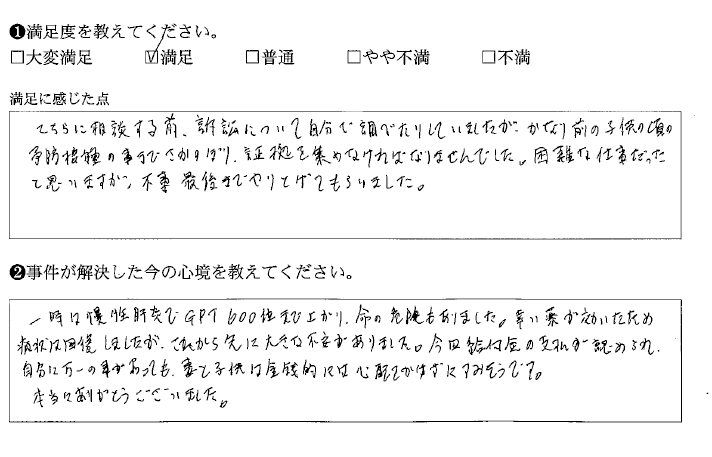 ❶満足度を教えてください。
□大変満足 ☑満足 □普通 □やや不満 □不満
満足に感じた点
こちらに相談する前、訴訟について自分で調べたりしていましたが、かなり前の子供の頃の
予防接種の事までさかのぼり、証拠を集めなければなりませんでした。困難な仕事だった
と思いますが、最後までやりとげてもらいました。
❷事件が解決した今の心境を教えてください。
一時は慢性肝炎でGPT 600位まで上がり、命の危険もありました。幸い薬が効いたため
病状は回復しましたが、これから先に大きな不安がありました。今回給付金の支払が認められ、
自分に万一の事があっても、妻と子供は金銭的には心配をかけずにすみそうです。
本当にありがとうございました。